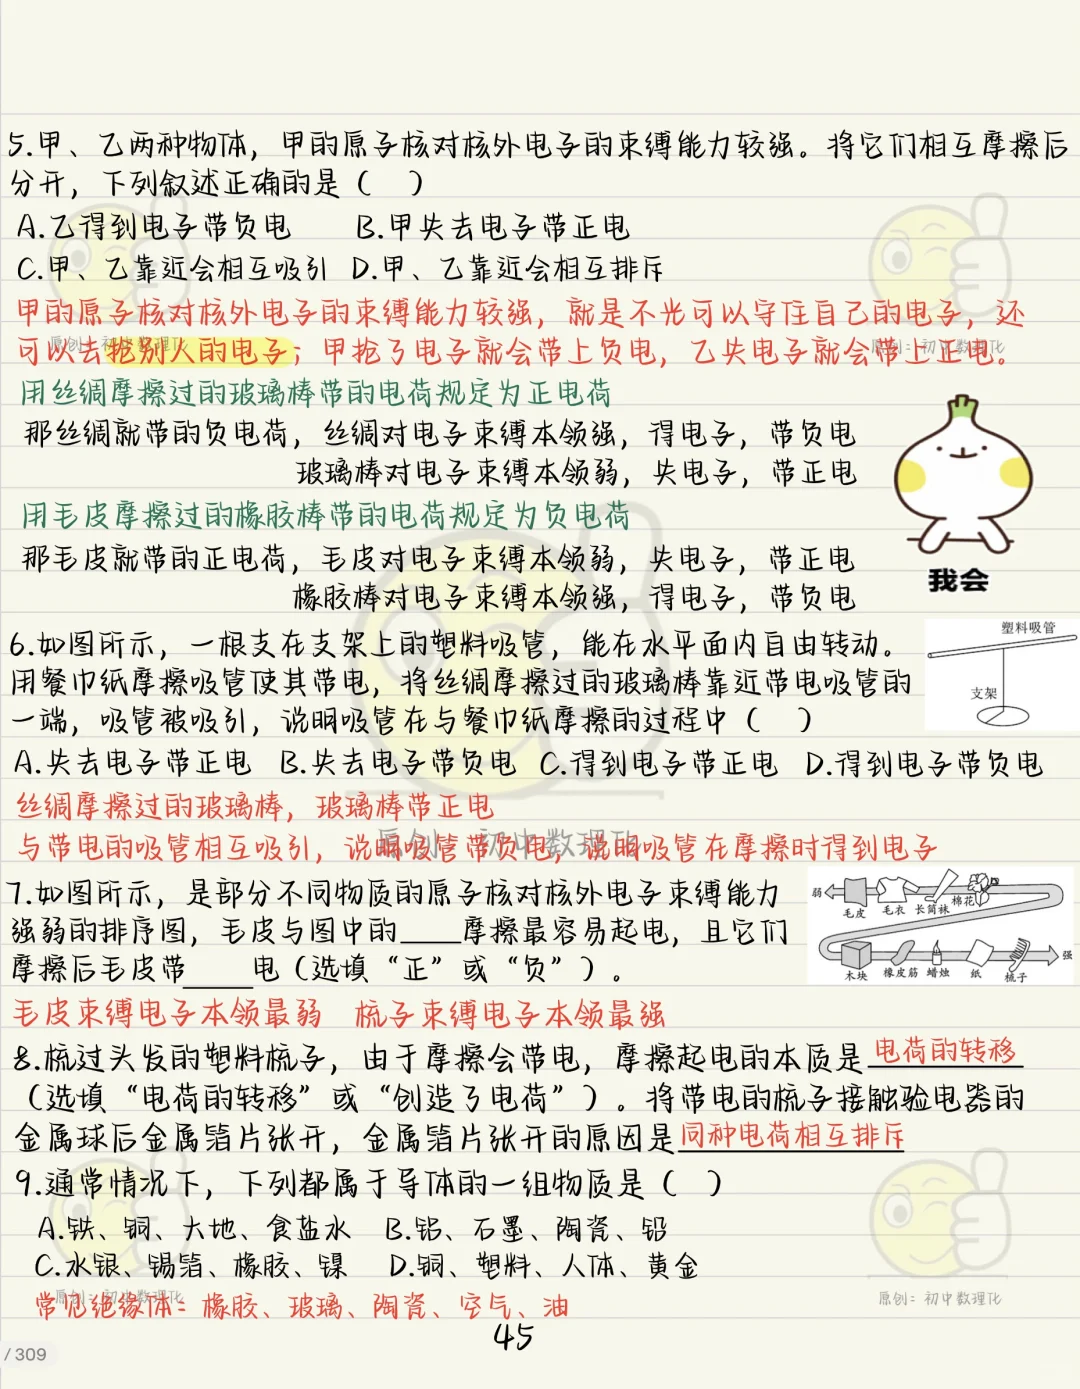 5.甲、乙两种物体，甲的原子核对核外电子的束缚能力较强。将它们相互摩擦后
分开，下列叙述正确的是（　）
A.乙得到电子带负电　B.甲失去电子带正电
C.甲、乙靠近会相互吸引　D.甲、乙靠近会相互排斥
甲的原子核对核外电子的束缚能力较强，就是不光可以守住自己的电子，还
可以去抢别人的电子；甲抢了电子就会带上负电，乙失电子就会带上正电。
用丝绸摩擦过的玻璃棒带的电荷规定为正电荷
那丝绸就带的负电荷，丝绸对电子束缚本领强，得电子，带负电
玻璃棒对电子束缚本领弱，失电子，带正电
用毛皮摩擦过的橡胶棒带的电荷规定为负电荷
那毛皮就带的正电荷，毛皮对电子束缚本领弱，失电子，带正电
橡胶棒对电子束缚本领强，得电子，带负电
我会
6.如图所示，一根支在支架上的塑料吸管，能在水平面内自由转动。
用餐巾纸摩擦吸管使其带电，将丝绸摩擦过的玻璃棒靠近带电吸管的
一端，吸管被吸引，说明吸管在与餐巾纸摩擦的过程中（　）
塑料吸管
支架
A.失去电子带正电　B.失去电子带负电　C.得到电子带正电　D.得到电子带负电
丝绸摩擦过的玻璃棒，玻璃棒带正电
与带电的吸管相互吸引，说明吸管带负电，说明吸管在摩擦时得到电子
7.如图所示，是部分不同物质的原子核对核外电子束缚能力
强弱的排序图，毛皮与图中的____摩擦最容易起电，且它们
摩擦后毛皮带____电（选填“正”或“负”）。
弱　毛皮　毛衣　长筒袜　棉花
木块　橡皮筋　蜡烛　纸　梳子　强
毛皮束缚电子本领最弱　梳子束缚电子本领最强
8.梳过头发的塑料梳子，由于摩擦会带电，摩擦起电的本质是电荷的转移
（选填“电荷的转移”或“创造了电荷”）。将带电的梳子接触验电器的
金属球后金属箔片张开，金属箔片张开的原因是同种电荷相互排斥
9.通常情况下，下列都属于导体的一组物质是（　）
A.铁、铜、大地、食盐水　B.铝、石墨、陶瓷、铅
C.水银、锡箔、橡胶、镍　D.铜、塑料、人体、黄金
常见绝缘体：橡胶、玻璃、陶瓷、空气、油
45
/ 309
原创：初中数理化
原创：初中数理化
原创：初中数理化
原创：初中数理化
原创：初中数理化